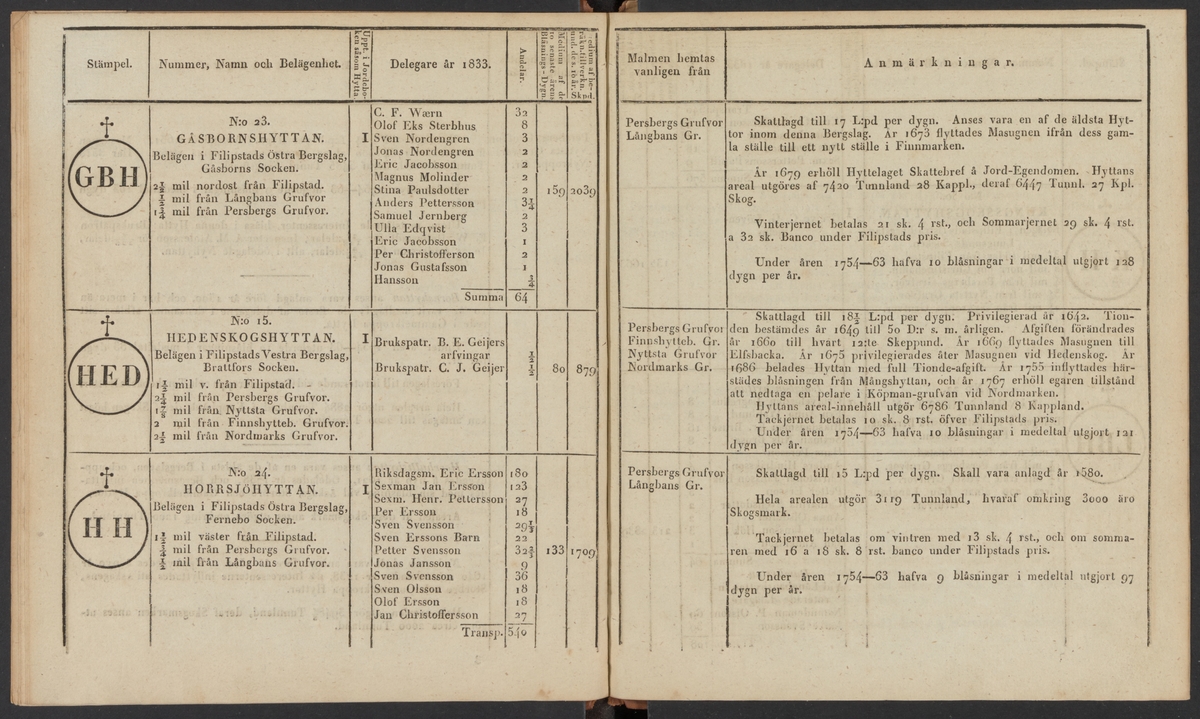 Stämpel.
Nummer, Namn och Belägenhet.
Uppt. i Jordebo-
ken såsom Hytta.
Delegare år 1833.
Andelar.
Medium af de
10 senaste årens
Blåsnings-Dygn.
Medium af be-
räkn. tillverkn.
und. des. 10 år.
Skpd.
GBH
N:o 23.
GÅSBORNSHYTTAN.
Belägen i Filipstads Östra Bergslag,
Gåsborns Socken.
2½ mil nordost från Filipstad.
½ mil från Långbans Grufvor
1¾ mil från Persbergs Grufvor.
1
C. F. Wærn 32
Olof Eks Sterbhus 8
Sven Nordengren 3
Jonas Nordengren 2
Eric Jacobsson 2
Magnus Molinder 2
Stina Paulsdotter 2
Anders Pettersson 3¼
Samuel Jernberg 2
Ulla Edqvist 3
Eric Jacobsson 1
Per Christofferson 2
Jonas Gustafsson 1
Hansson ¾
Summa 64
159 2039
HED
N:o 15.
HEDENSKOGSHYTTAN.
Belägen i Filipstads Vestra Bergslag,
Brattfors Socken.
1½ mil v. från Filipstad.
2¼ mil från Persbergs Grufvor.
1⅞ mil från Nyttsta Grufvor.
2 mil från Finnshytteb. Grufvor.
2½ mil från Nordmarks Grufvor.
1
Brukspatr. B. E. Geijers
arfvingar ½
Brukspatr. C. J. Geijer ½
80 879
HH
N:o 24.
HORRSJÖHYTTAN.
Belägen i Filipstads Östra Bergslag,
Fernebo Socken.
1½ mil väster från Filipstad.
¾ mil från Persbergs Grufvor.
½ mil från Långbans Grufvor.
1
Riksdagsm. Eric Ersson 180
Sexman Jan Ersson 123
Sexm. Henr. Pettersson 27
Per Ersson 18
Sven Svensson 29⅓
Sven Erssons Barn 22
Petter Svensson 32⅔
Jonas Jansson 9
Sven Svensson 36
Sven Olsson 18
Olof Ersson 18
Jan Christoffersson 27
Transp. 540
133 1709
Malmen hemtas
vanligen från
Anmärkningar.
Persbergs Grufvor
Långbans Gr.
Skattlagd till 17 L:pd per dygn. Anses vara en af de äldsta Hyt-
tor inom denna Bergslag. År 1673 flyttades Masugnen ifrån dess gam-
la ställe till ett nytt ställe i Finnmarken.
År 1679 erhöll Hyttelaget Skattebref å Jord-Egendomen. Hyttans
areal utgöres af 7420 Tunnland 28 Kappl., deraf 6447 Tunnl. 27 Kpl.
Skog.
Vinterjernet betalas 21 sk. 4 rst., och Sommarjernet 29 sk. 4 rst.
a 32 sk. Banco under Filipstads pris.
Under åren 1754—63 hafva 10 blåsningar i medeltal utgjort 128
dygn per år.
Persbergs Grufvor
Finnshytteb. Gr.
Nyttsta Grufvor
Nordmarks Gr.
Skattlagd till 18½ L:pd per dygn. Privilegierad år 1642. Tion-
den bestämdes år 1649 till 50 D:r s. m. årligen. Afgiften förändrades
år 1660 till hvart 12:te Skeppund. År 1669 flyttades Masugnen till
Elfsbacka. År 1675 privilegierades åter Masugnen vid Hedenskog. År
1686 belades Hyttan med full Tionde-afgift. År 1755 inflyttades här-
städes blåsningen från Mångshyttan, och år 1767 erhöll egaren tillstånd
att nedtaga en pelare i Köpman-grufvan vid Nordmarken.
Hyttans areal-innehåll utgör 6786 Tunnland 8 Kappland.
Tackjernet betalas 10 sk. 8 rst. öfver Filipstads pris.
Under åren 1754—63 hafva 10 blåsningar i medeltal utgjort 121
dygn per år.
Persbergs Grufvor
Långbans Gr.
Skattlagd till 15 L:pd per dygn. Skall vara anlagd år 1580.
Hela arealen utgör 3119 Tunnland, hvaraf omkring 3000 äro
Skogsmark.
Tackjernet betalas om vintren med 13 sk. 4 rst., och om somma-
ren med 16 a 18 sk. 8 rst. banco under Filipstads pris.
Under åren 1754—63 hafva 9 blåsningar i medeltal utgjort 97
dygn per år.